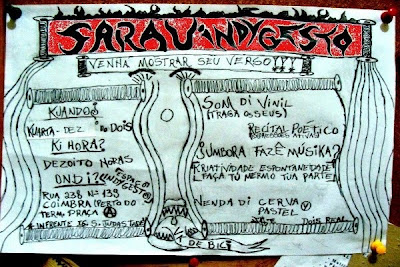 SARAU INDYGESTO
VENHA MOSTRAR SEU VERSO!!!
KUANDO?
KUARTA-DEZ DO DOIS
KI HORA?
DEZOITO HORAS
ONDI?
(ESPAÇO INDYGESTO)
RUA 238 Nº 139
COIMBRA (PERTO DO
TERM. PRAÇA A)
INFRENTE IG. S. JUDAS TADE
SOM DI VINIL
(TRAGA OS SEUS)
RECITAL POÉTICO
JUMBORA FAZÊ MÚSIKA?
KRIATIVIDADE ESPONTANEIDADE
FAÇA TU MERMO TUA PARTE!
VENDA DI CERVA
PASTEL
DOIS REAL
DE BICI